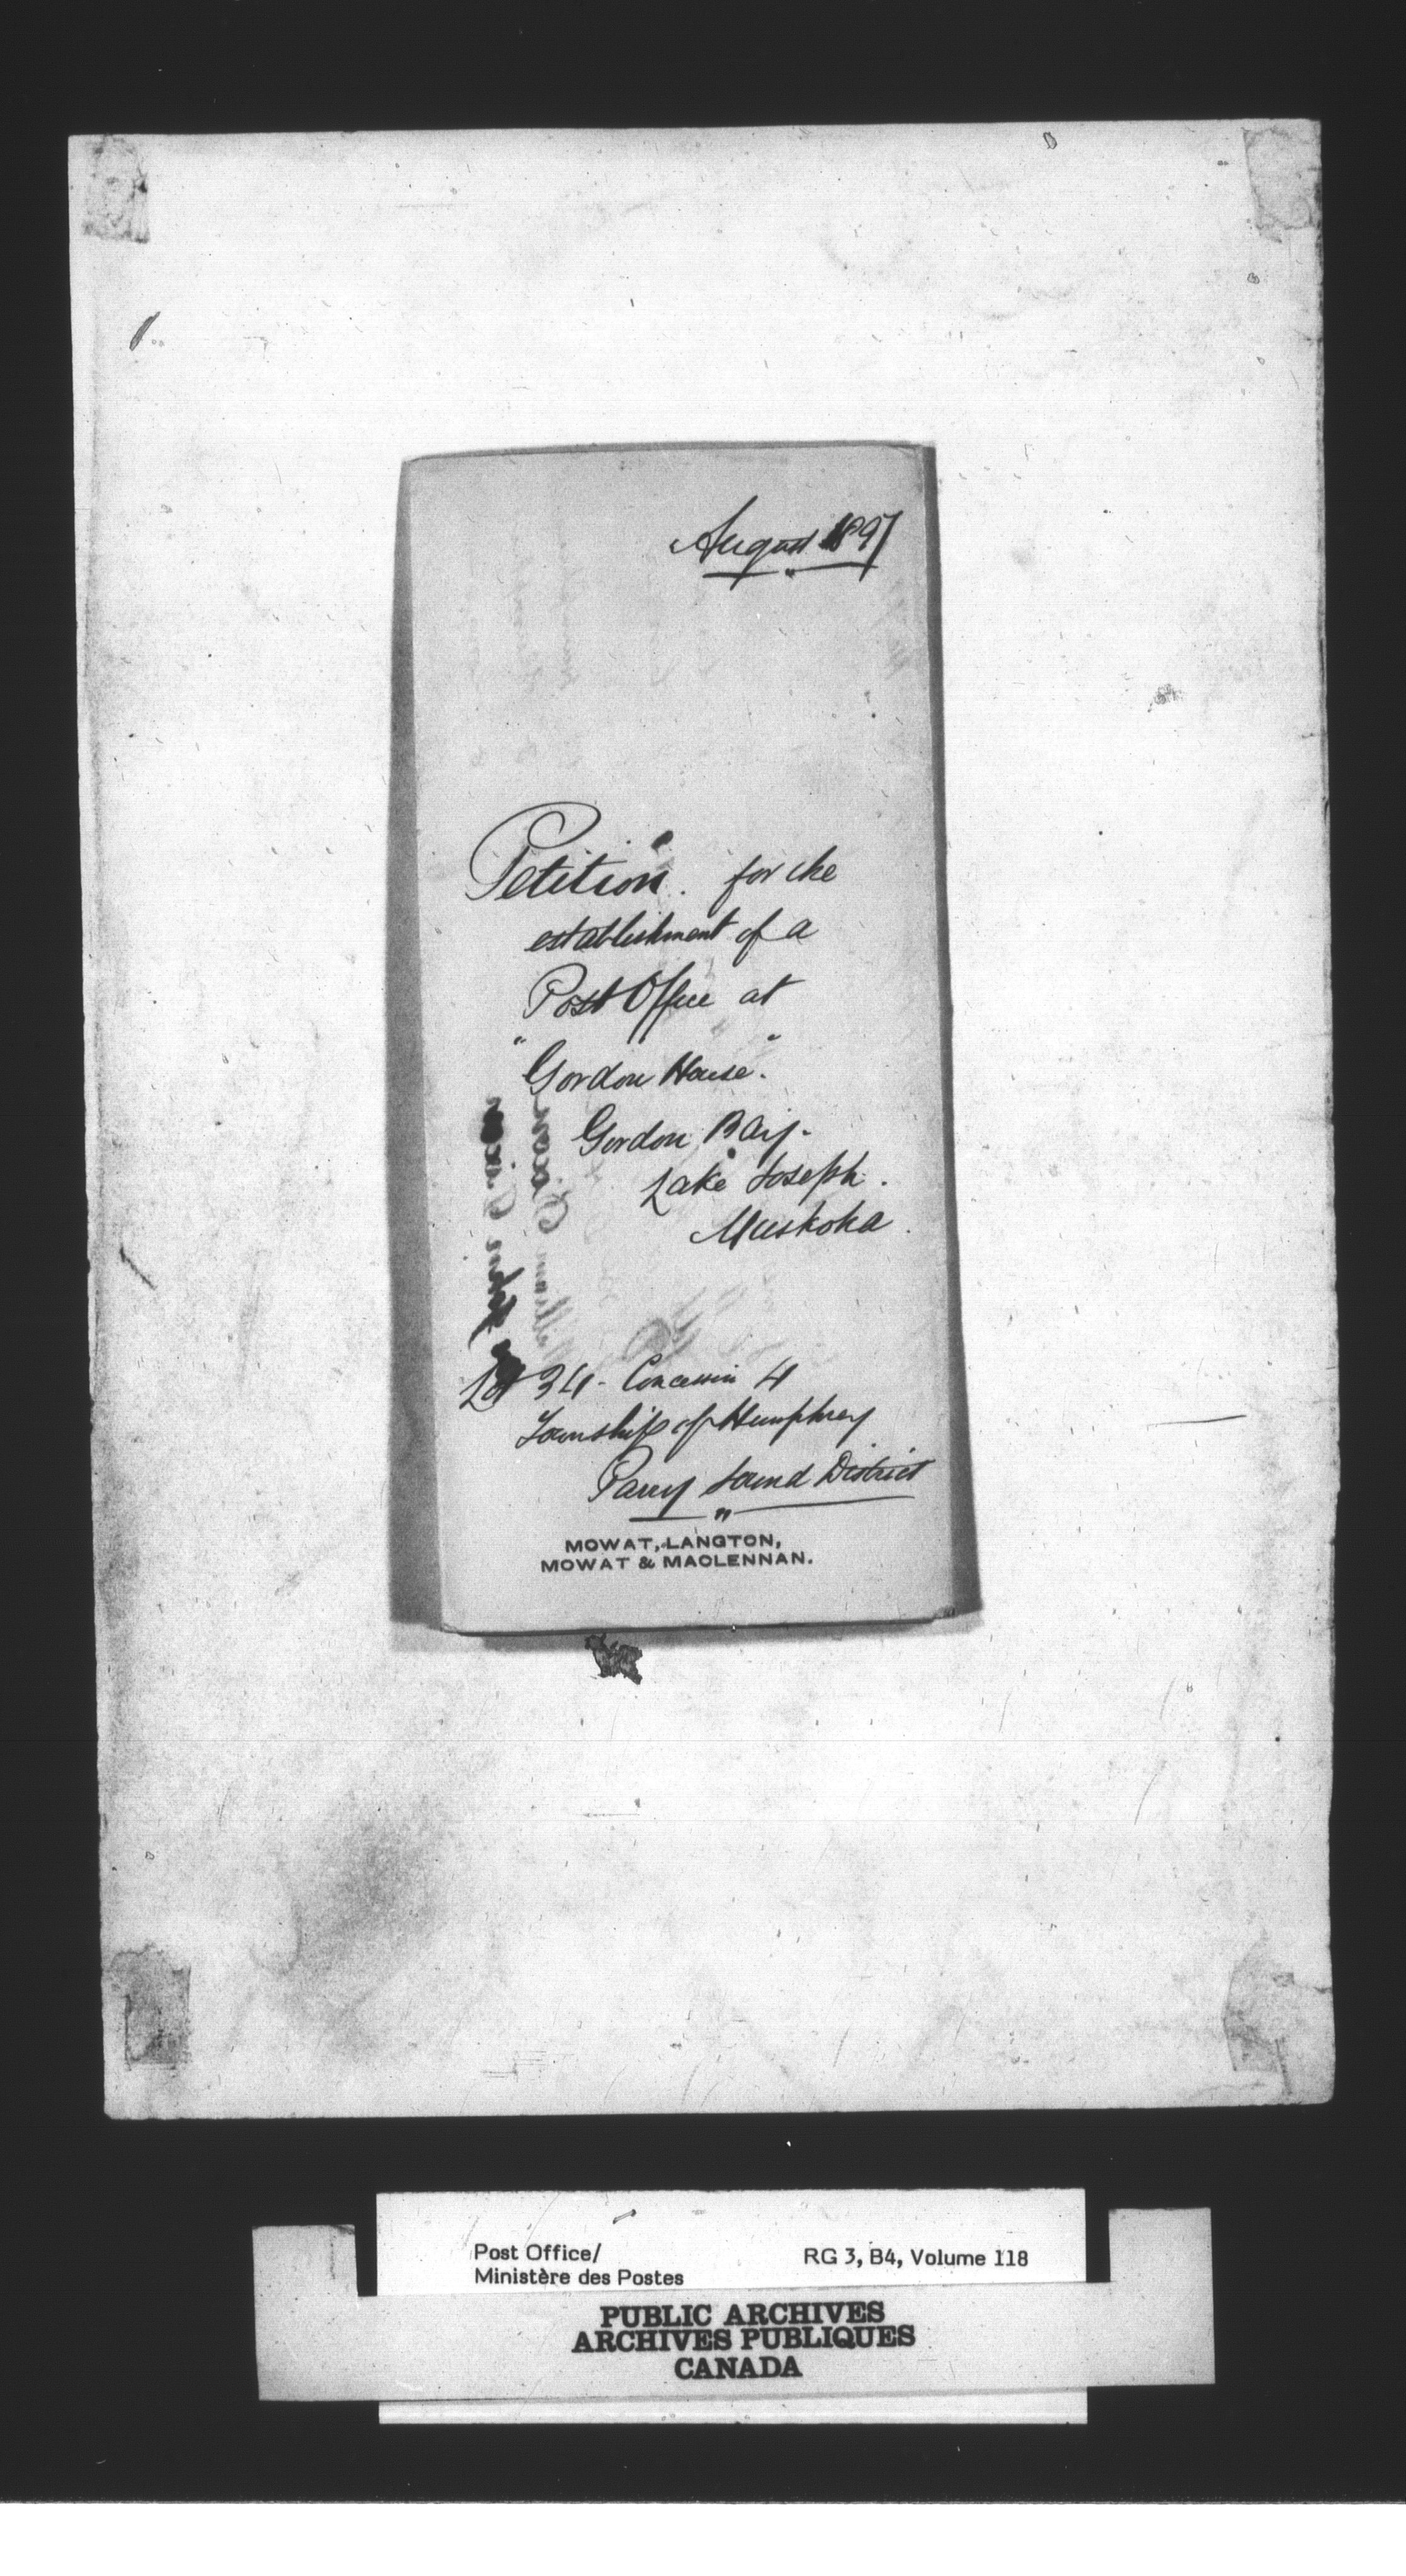 August 1897
Petition. for the
establishment of a
Post Office at
"Gordon House".
Gordon Bay.
Lake Joseph.
Muskoka.
Lot 34 - Concession 4
Township of Humphrey
Parry Sound District
MOWAT, LANGTON,
MOWAT & MACLENNAN.
Post Office/
Ministère des Postes
RG 3, B4, Volume 118
PUBLIC ARCHIVES
ARCHIVES PUBLIQUES
CANADA